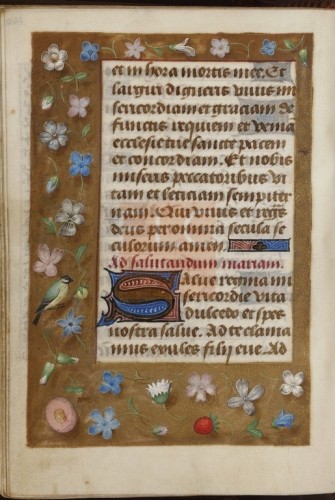 et in hora mortis mee. Et
largiri digneris viuis mi
sericordiam et graciam de
functis requiem et veniā
ecclesie tue sancte pacem
et concordiam. Et nobis
miseris peccatoribus vi
tam et leticiam sempiter
nam. Qui viuis et regn̄s
deus per omnia secula se
culorum amen.
Ad salutandum mariam.
Salue regina mi
sericordie vita
dulcedo et spes
nostra salue. Ad te clama
mus exules filij eue. Ad